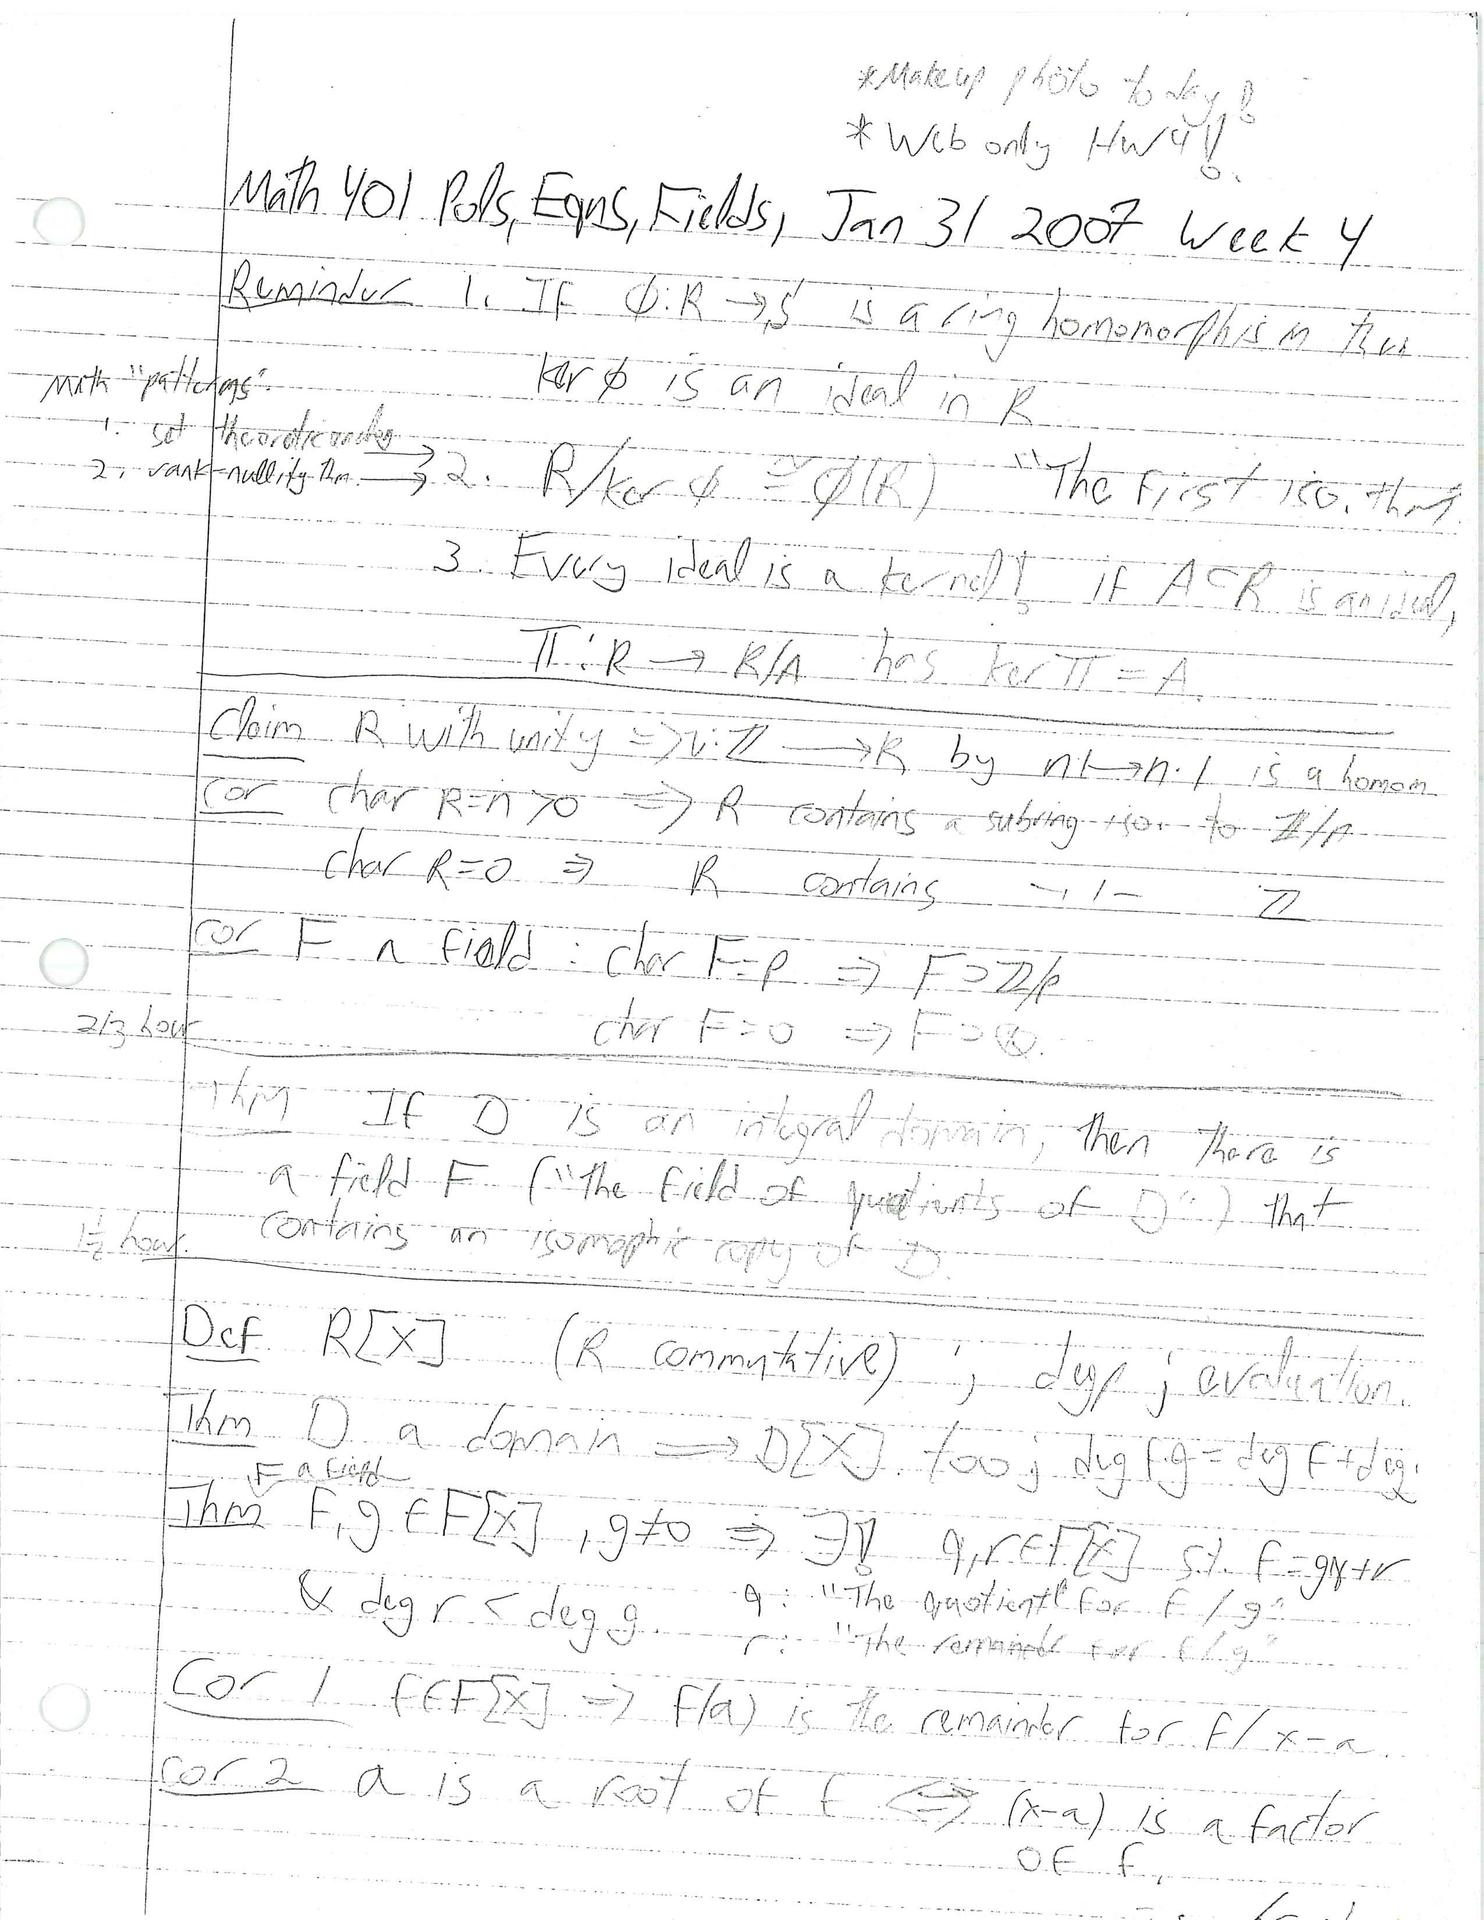 *Makeup photo today!
*Web only HW4!
Math 401 Pols, Eqns, Fields, Jan 31 2007 Week 4
Reminder 1. If φ:R→S is a ring homomorphism then
ker φ is an ideal in R
Math "patterns":
1. set theoretic
2. rank-nullity thm. → 2. R/ker φ ≅ φ(R) "The first iso. thm".
3. Every ideal is a kernel! if A⊂R is an ideal,
π:R → R/A has ker π = A.
Claim R with unity ⇒ ι:ℤ → R by n↦n·1 is a homom
Cor char R=n>0 ⇒ R contains a subring iso. to ℤ/n
char R=0 ⇒ R contains —ı ı— ℤ
Cor F a field: char F=p ⇒ F⊃ℤ/p
char F=0 ⇒ F⊃ℚ.
2/3 hour
Thm If D is an integral domain, then there is
a field F ("The field of quotients of D") that
contains an isomophic copy of D.
1½ hour.
Def R[x] (R commutative); deg p; evaluation.
Thm D a domain ⇒ D[x] too; deg f·g = deg f + deg g.
F a field
Thm f,g∈F[x], g≠0 ⇒ ∃! q,r∈F[x] s.t. f=gq+r
& deg r < deg g. q: "The quotient for f/g"
r: "The remainder for f/g"
Cor 1 f∈F[x] ⇒ f(a) is the remainder for f/x-a.
Cor 2 a is a root of f ⟺ (x-a) is a factor
of f.